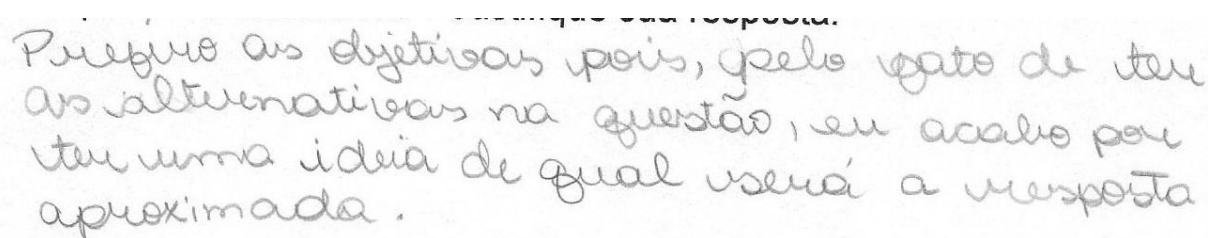 justifique sua resposta.
Prefiro as objetivas pois, pelo fato de ter
as alternativas na questão, eu acabo por
ter uma ideia de qual será a resposta
aproximada.